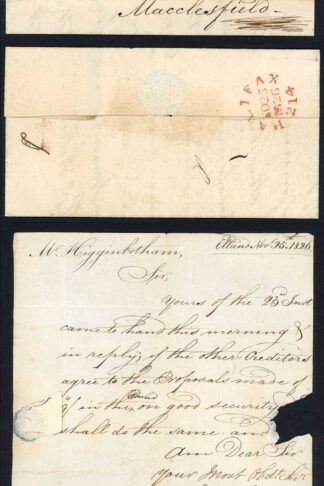 Macclesfield
HALIFAX
NO 25
1826
214
Elland Nov 25th 1826
Mr Higgenbotham,
Sir,
Yours of the 23rd Inst
came to hand this morning &
in reply; if the other Creditors
agree to the Proposals made of
in the Pound on good security
shall do the same and
Am Dear Sir
Your Most Obdt